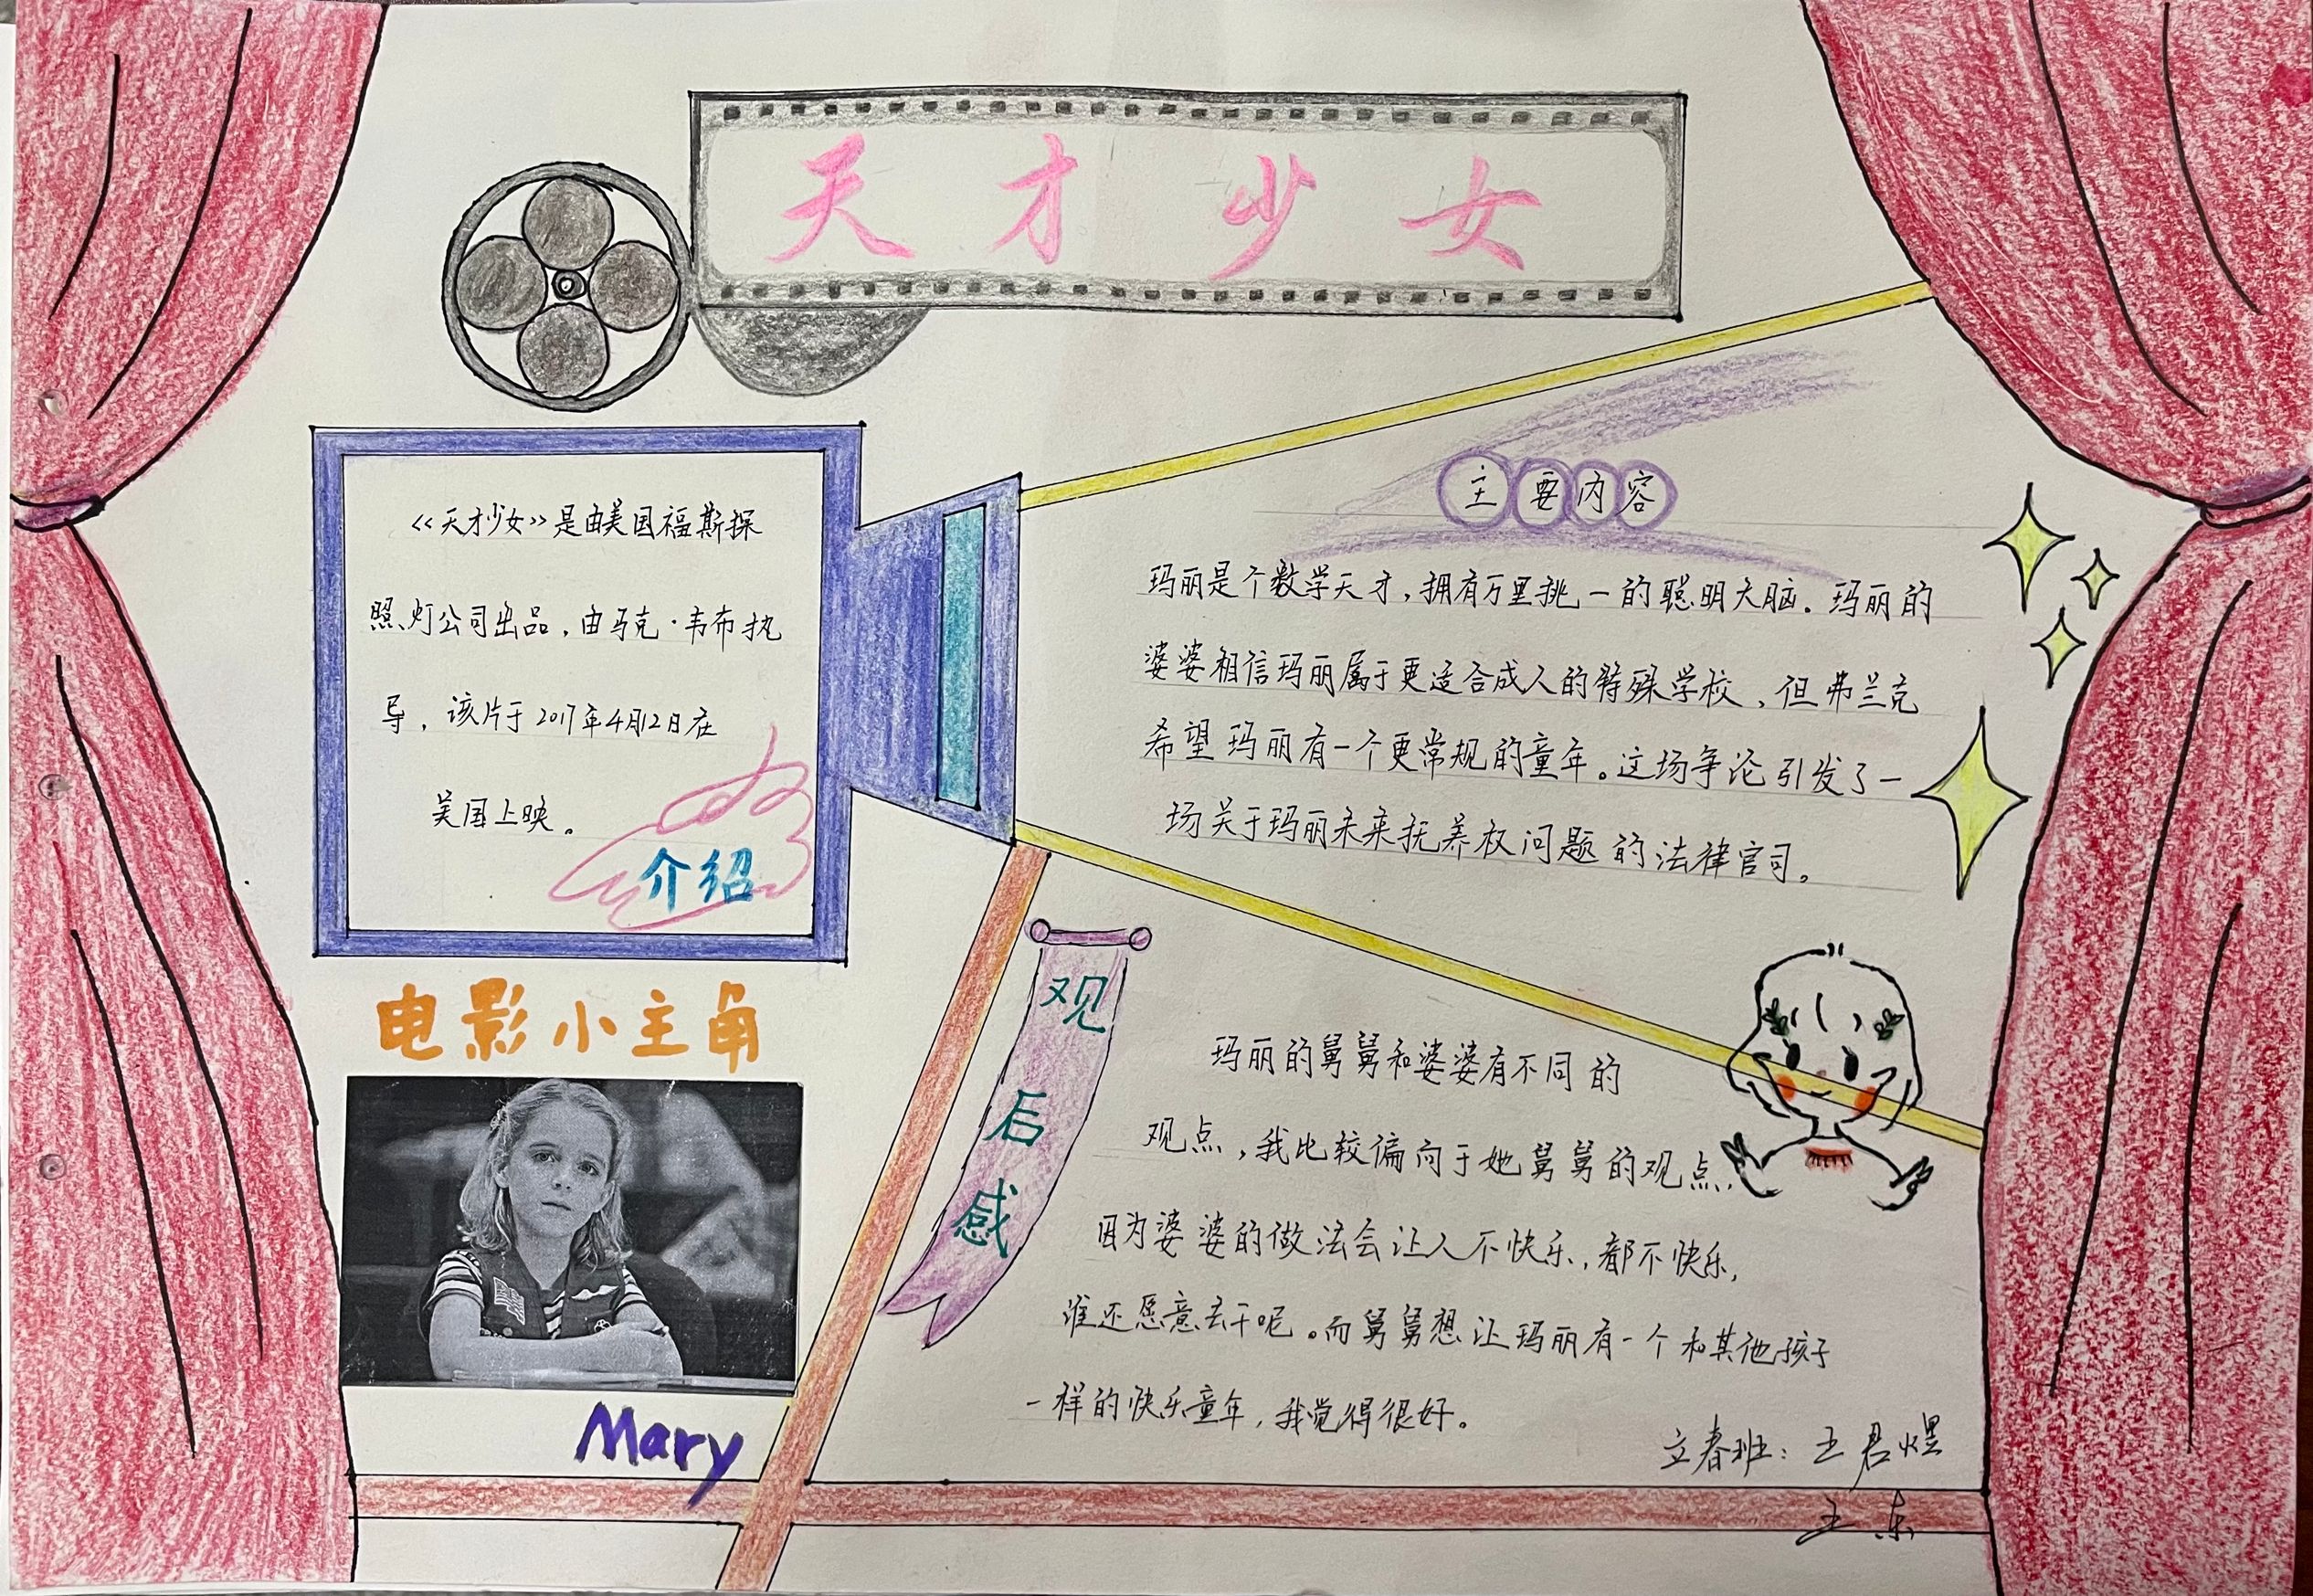 天才少女
《天才少女》是由美国福斯探
照灯公司出品，由马克·韦布执
导，该片于2017年4月12日在
美国上映。
介绍
主要内容
玛丽是个数学天才，拥有万里挑一的聪明大脑。玛丽的
婆婆相信玛丽属于更适合成人的特殊学校，但弗兰克
希望玛丽有一个更常规的童年。这场争论引发了一
场关于玛丽未来抚养权问题的法律官司。
电影小主角
Mary
观后感
玛丽的舅舅和婆婆有不同的
观点，我比较偏向于她舅舅的观点，
因为婆婆的做法会让人不快乐，都不快乐，
谁还愿意去干呢。而舅舅想让玛丽有一个和其他孩子
一样的快乐童年，我觉得很好。
立春班：王君煜
王东